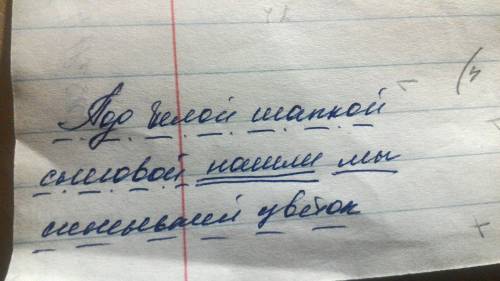 Под белой шапкой
снеговой нашли мы
синенький цветок